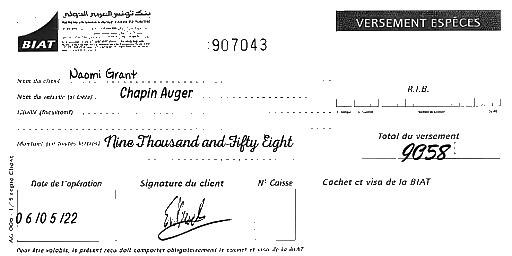 بنك تونس العربي الدولي
BIAT
VERSEMENT ESPÈCES
907043
Nom du client Naomi Grant
R.I.B.
Chapin Auger
Montant (en toutes lettres) Nine Thousand and Fifty Eight
Total du versement
9058
Date de l'opération Signature du client N° Caisse Cachet et visa de la BIAT
06/05/22
Pour être valable, le présent reçu doit comporter obligatoirement le cachet et visa de la BIAT